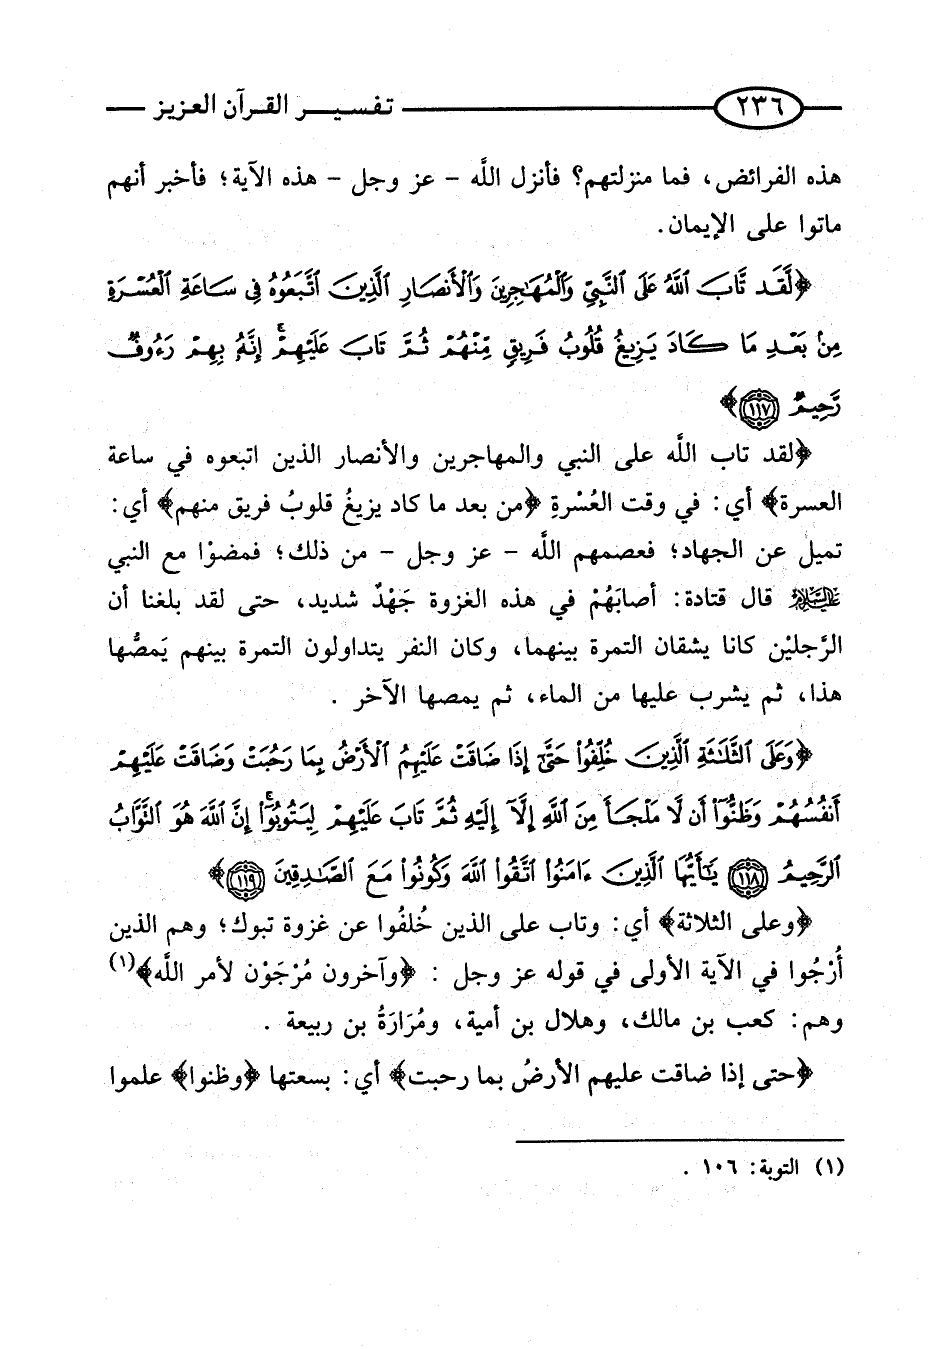 ٢٣٦ تفسير القرآن العزيز
هذه الفرائض، فما منزلتهم؟ فأنزل اللَّه - عز وجل - هذه الآية؛ فأخبر أنهم
ماتوا على الإيمان.
﴿لَّقَد تَّابَ ٱللَّهُ عَلَى ٱلنَّبِيِّ وَٱلْمُهَٰجِرِينَ وَٱلْأَنصَارِ ٱلَّذِينَ ٱتَّبَعُوهُ فِي سَاعَةِ ٱلْعُسْرَةِ
مِنۢ بَعْدِ مَا كَادَ يَزِيغُ قُلُوبُ فَرِيقٍ مِّنْهُمْ ثُمَّ تَابَ عَلَيْهِمْ ۚ إِنَّهُۥ بِهِمْ رَءُوفٌ
رَّحِيمٌ ١١٧﴾
﴿لقد تاب اللَّه على النبي والمهاجرين والأنصار الذين اتبعوه في ساعة
العسرة﴾ أي: في وقت العُسْرةِ ﴿من بعد ما كاد يزيغُ قلوبُ فريق منهم﴾ أي:
تميل عن الجهاد؛ فعصمهم اللَّه - عز وجل - من ذلك؛ فمضوْا مع النبي
عليه السلام قال قتادة: أصابَهُمْ في هذه الغزوة جَهْدٌ شديد، حتى لقد بلغنا أن
الرَّجليْن كانا يشقان التمرة بينهما، وكان النفر يتداولون التمرة بينهم يَمصُّها
هذا، ثم يشرب عليها من الماء، ثم يمصها الآخر .
﴿وَعَلَى ٱلثَّلَٰثَةِ ٱلَّذِينَ خُلِّفُوا۟ حَتَّىٰٓ إِذَا ضَاقَتْ عَلَيْهِمُ ٱلْأَرْضُ بِمَا رَحُبَتْ وَضَاقَتْ عَلَيْهِمْ
أَنفُسُهُمْ وَظَنُّوٓا۟ أَن لَّا مَلْجَأَ مِنَ ٱللَّهِ إِلَّآ إِلَيْهِ ثُمَّ تَابَ عَلَيْهِمْ لِيَتُوبُوٓا۟ ۚ إِنَّ ٱللَّهَ هُوَ ٱلتَّوَّابُ
ٱلرَّحِيمُ ١١٨ يَٰٓأَيُّهَا ٱلَّذِينَ ءَامَنُوا۟ ٱتَّقُوا۟ ٱللَّهَ وَكُونُوا۟ مَعَ ٱلصَّٰدِقِينَ ١١٩﴾
﴿وعلى الثلاثة﴾ أي: وتاب على الذين خُلفُوا عن غزوة تبوك؛ وهم الذين
أُرْجُوا في الآية الأولى في قوله عز وجل : ﴿وآخرون مُرْجَوْن لأمر اللَّه﴾(١)
وهم: كعب بن مالك، وهلال بن أمية، ومُرَارَةُ بن ربيعة .
﴿حتى إذا ضاقت عليهم الأرضُ بما رحبت﴾ أي: بسعتها ﴿وظنوا﴾ علموا
(١) التوبة: ١٠٦ .